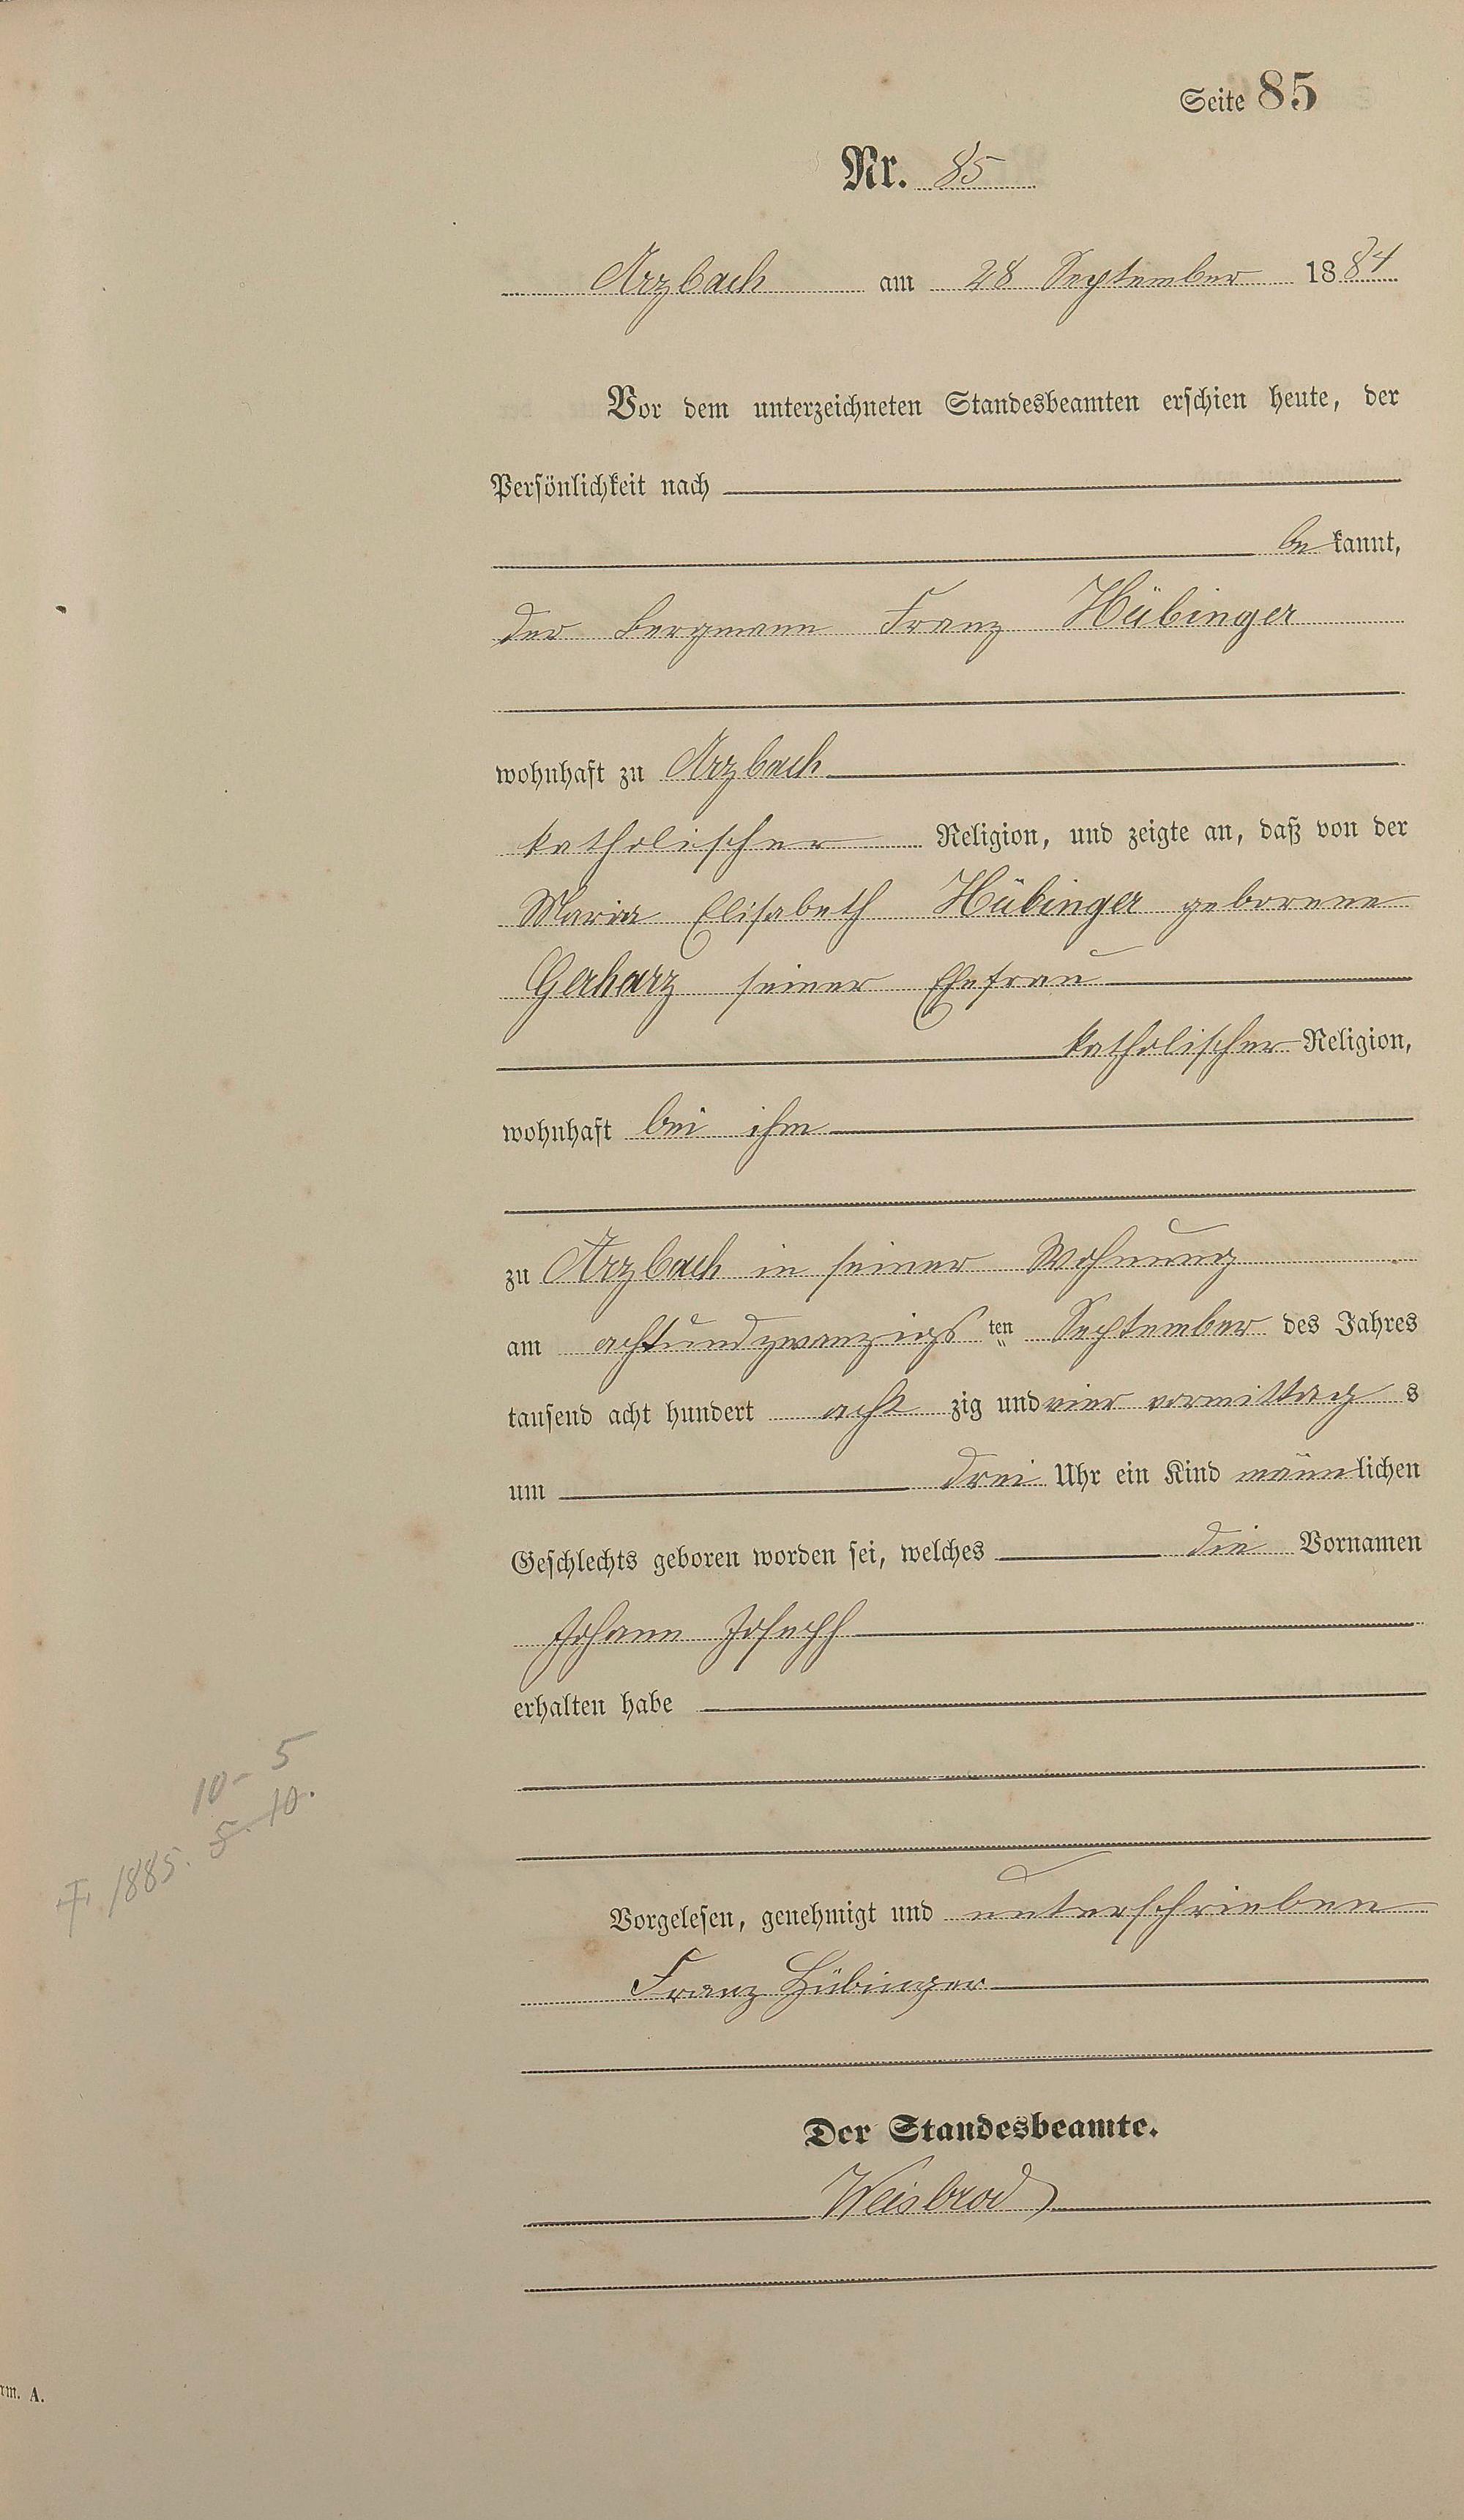 Seite 85
Nr. 85
Arzbach am 28 September 1884
Vor dem unterzeichneten Standesbeamten erschien heute, der
Persönlichkeit nach
bekannt,
der Bergmann Franz Hübinger
wohnhaft zu Arzbach
katholischer Religion, und zeigte an, daß von der
Maria Elisabeth Hübinger geborene
Gerharz seiner Ehefrau
katholischer Religion,
wohnhaft bei ihm
zu Arzbach in seiner Wohnung
am achtundzwanzigsten September des Jahres
tausend acht hundert achtzig und vier vormittags
um drei Uhr ein Kind männlichen
Geschlechts geboren worden sei, welches die Vornamen
Johann Joseph
erhalten habe
10 - 5
† 1885. 5. 10.
Vorgelesen, genehmigt und unterschrieben
Franz Hübinger
Der Standesbeamte.
Weisbrod
rm. A.